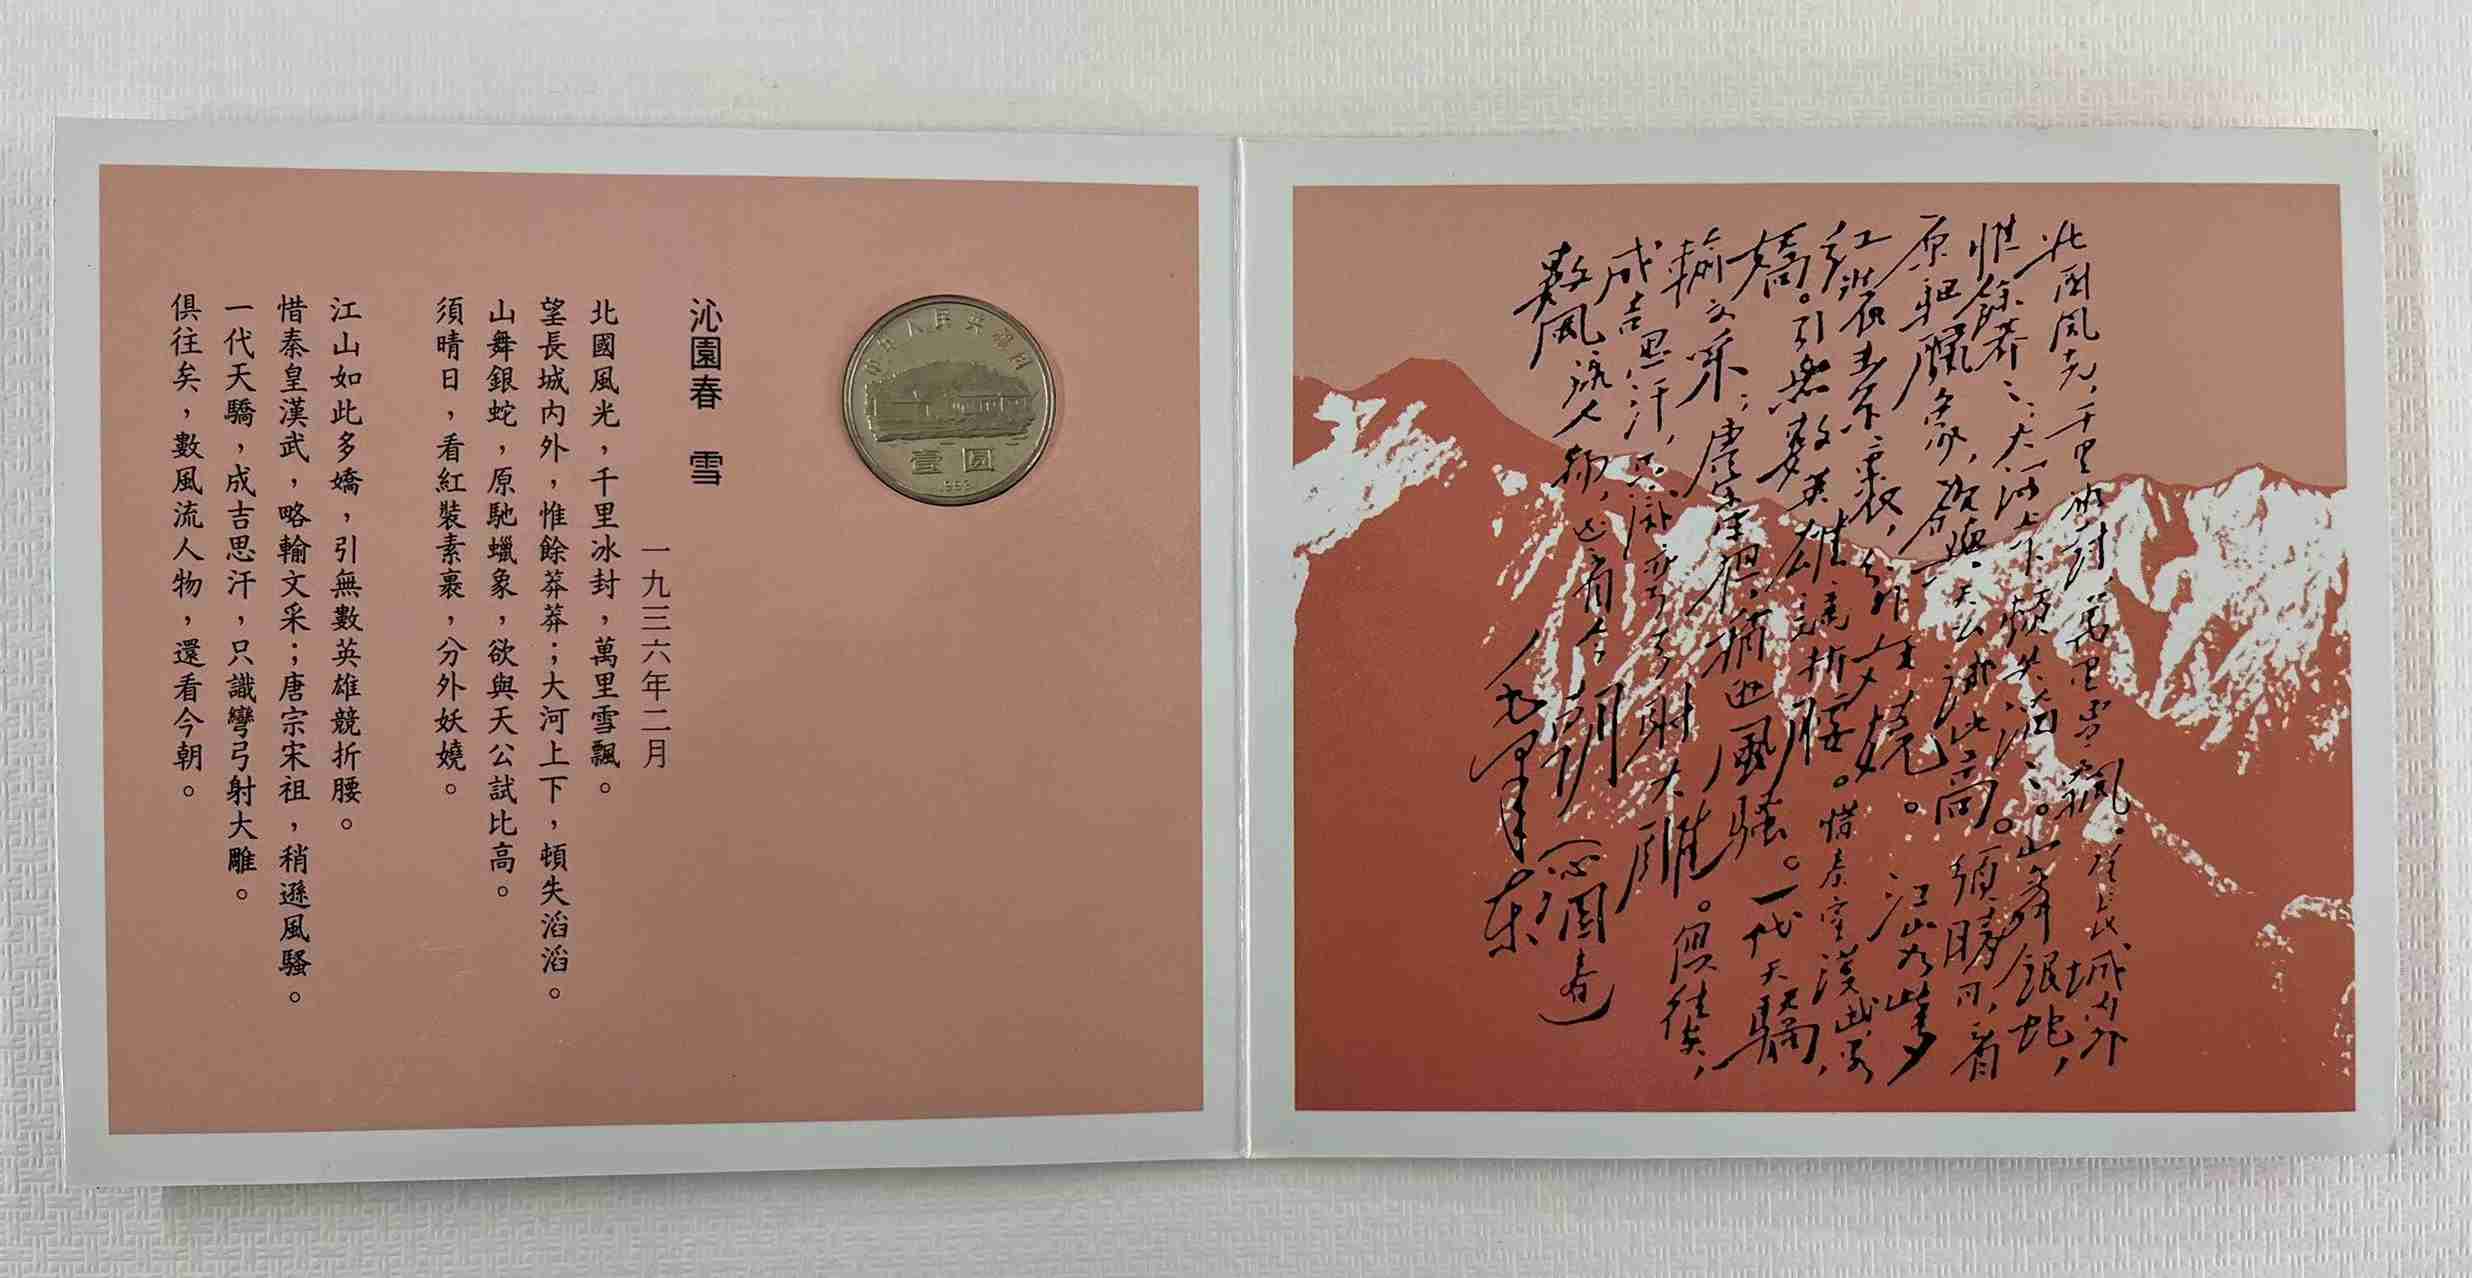 北國風光，千里冰封，萬里雪飄。望長城內外
惟餘莽莽；大河上下，頓失滔滔。山舞銀蛇，
原驅臘象，欲與天公試比高。須晴日，看
紅裝素裹，分外妖嬈。江山如此多
嬌。引無數英雄競折腰。惜秦皇漢武，略
輸文采；唐宗宋祖，稍遜風騷。一代天驕，
成吉思汗，只識彎弓射大雕。俱往矣，
數風流人物，還看今朝（沁園春）
毛澤東
中华人民共和国
壹圆
1993
沁園春　雪
一九三六年二月
北國風光，千里冰封，萬里雪飄。
望長城內外，惟餘莽莽；大河上下，頓失滔滔。
山舞銀蛇，原馳蠟象，欲與天公試比高。
須晴日，看紅裝素裹，分外妖嬈。
江山如此多嬌，引無數英雄競折腰。
惜秦皇漢武，略輸文采；唐宗宋祖，稍遜風騷。
一代天驕，成吉思汗，只識彎弓射大雕。
俱往矣，數風流人物，還看今朝。